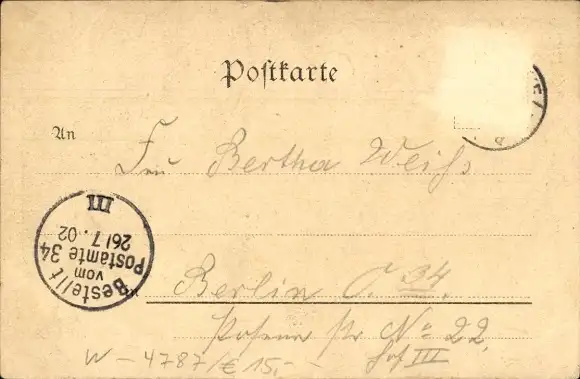 Postkarte
An
Frau Bertha Weiß
Bestellt
vom
Postamte 34
26/7. 02
III
in
Berlin O. 34.
Posener Str No 22.
Hof III
W - 4787/€ 15,-